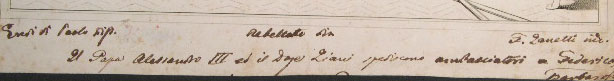 Eredi di Paolo dis. Rebellato dir. F. Zanetti inc.
Il Papa Alessandro III ed il Doge Ziani spediscono ambasciatori a Federico